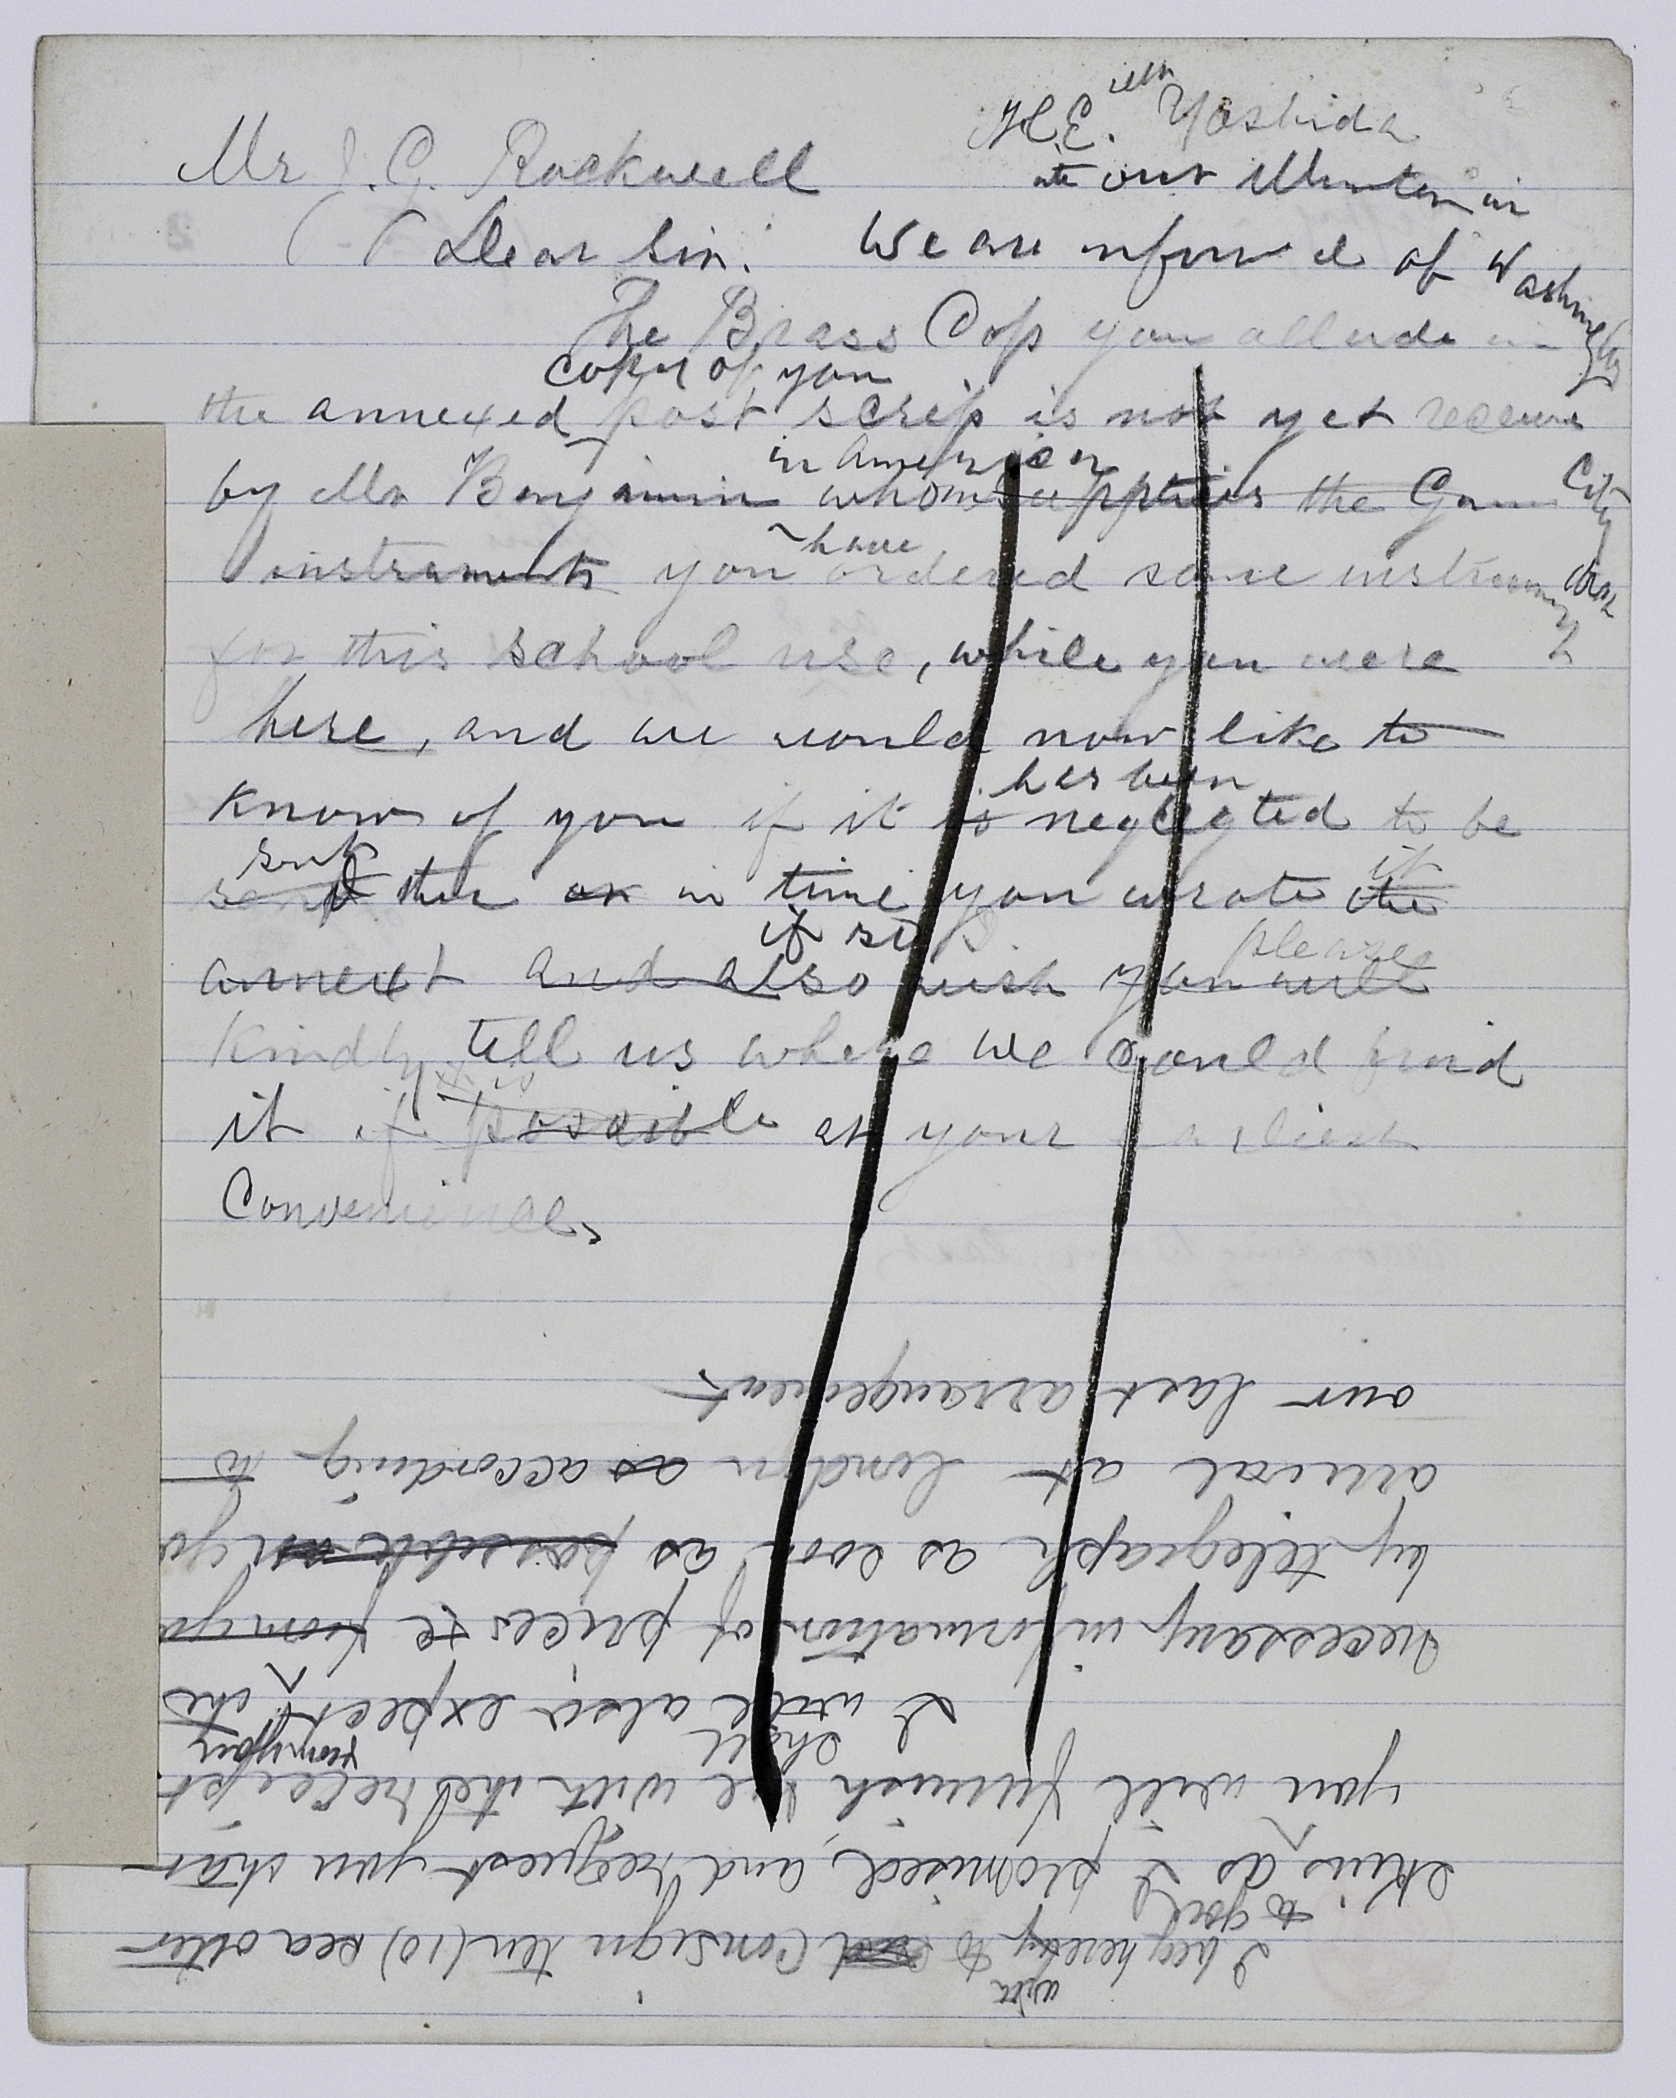 H. E. Yoshida
Mr J. C. Rockwell
our Minister in
Dear Sir. We are informed of Washington
The Brass Cop you allude in
copy of you
the annexed post scrip is not yet receive
in American City
by Mr Benjamin whom supplies the Gun
have
instruments you ordered some instrument
for this school use, while you were
here, and we would now like to
has been
know of you if it is neglected to be
it
send ther or in time you wrote the
if so please
annext and also wish you will
Kindly tell us where we could find
it if possible at your earliest
Convenience.
I beg hereby to and Consign ten (10) sea otter
to you
skins as I promised, and request you that
you will furnish me with the receipt
shall from you
I will also expect the
necessary information of prices from yo
by telegraph as soon as possible
arrival at London as according to
our last arrangement.